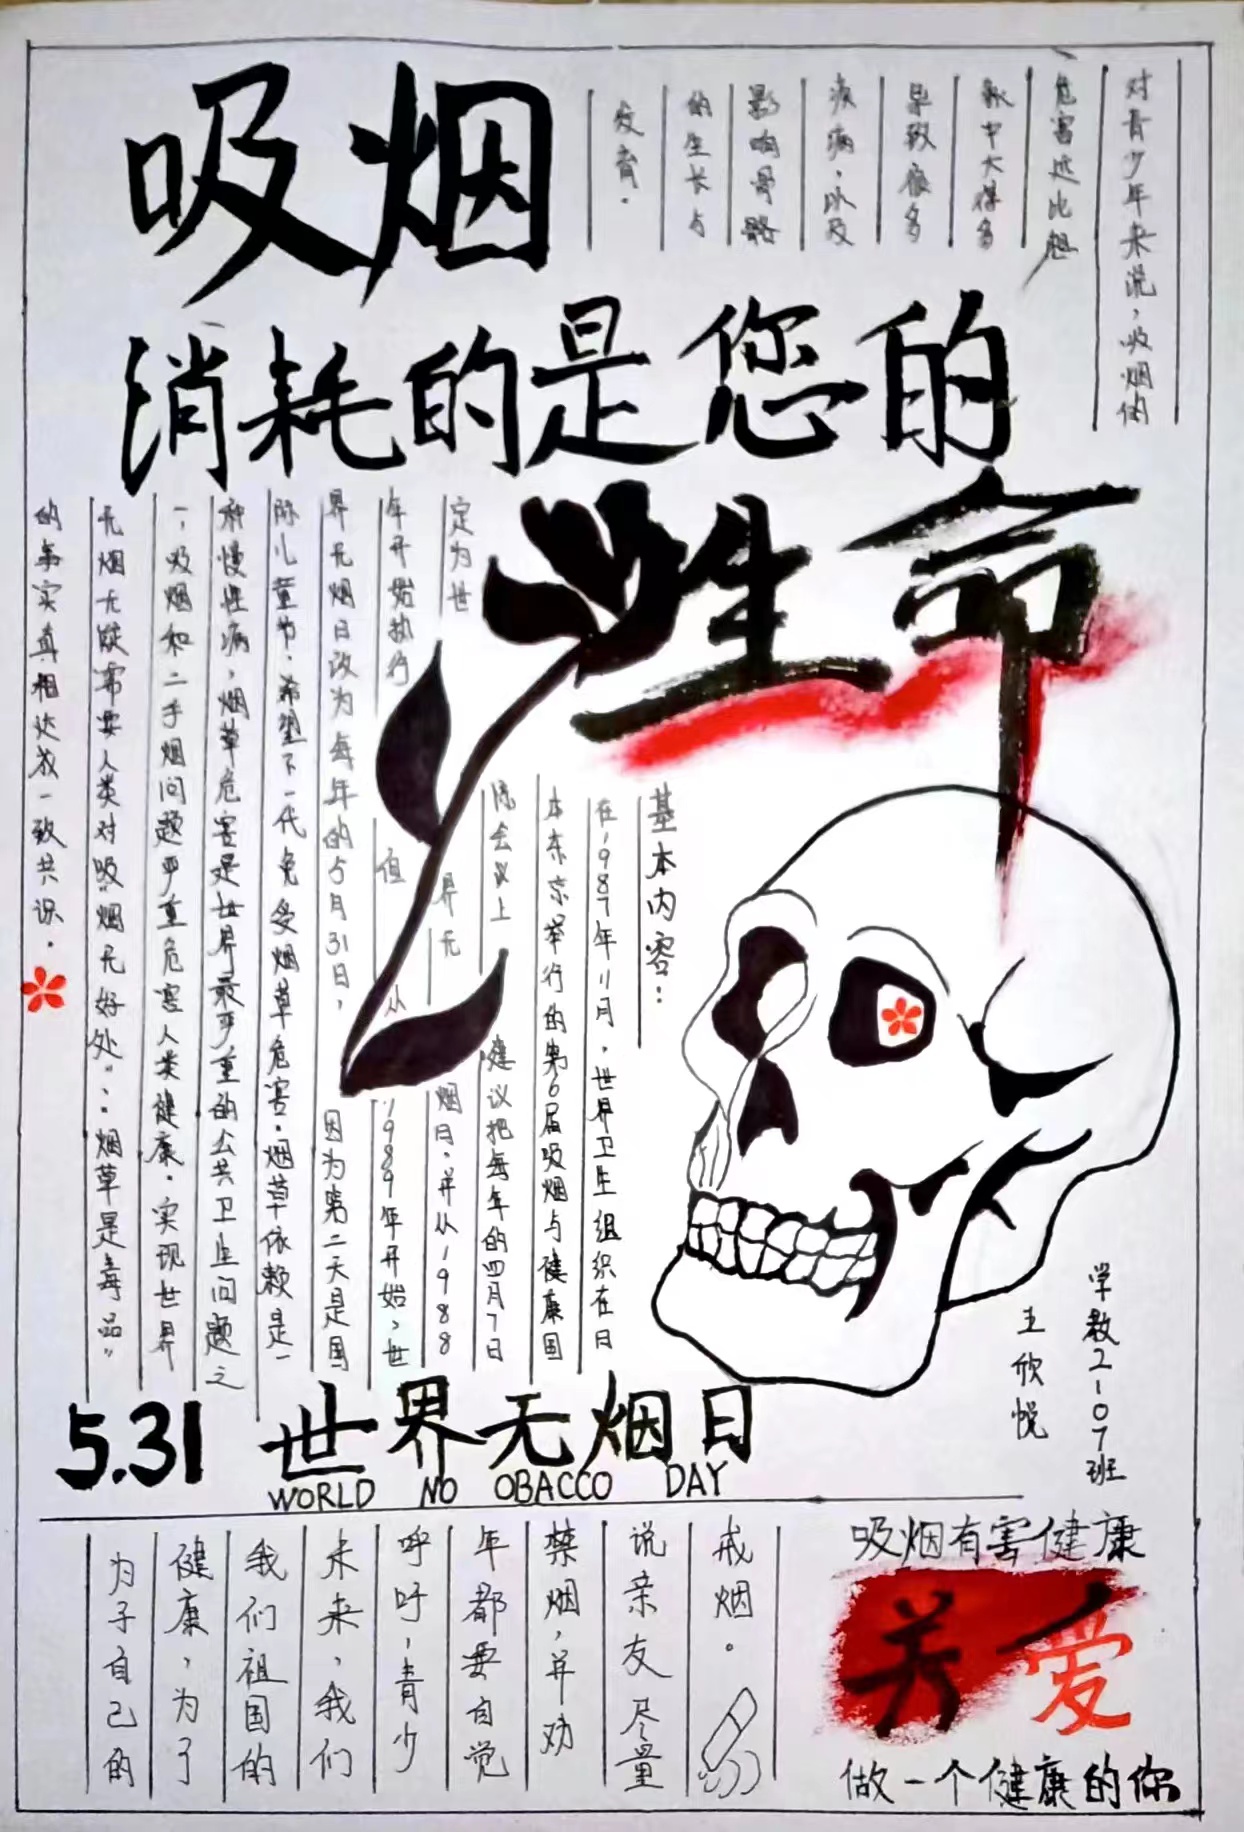 吸烟
消耗的是您的
生命
对青少年来说，吸烟的
危害远比想
象中大得多
导致很多
疾病，以及
影响骨骼
的生长与
发育．
基本内容：
在1987年11月，世界卫生组织在日
本东京举行的第6届吸烟与健康国
际会议上建议把每年的四月7日
定为世界无烟日，并从1988
年开始执行但从1989年开始，世
界无烟日改为每年的5月31日，因为第二天是国
际儿童节．希望下一代免受烟草危害．烟草依赖是一
种慢性病，烟草危害是世界最严重的公共卫生问题之
一，吸烟和二手烟问题严重危害人类健康．实现世界
无烟无疑需要人类对吸"烟无好处"：烟草是毒品"
的事实真相达成一致共识．
学教2-107班
王欣悦
5.31 世界无烟日
WORLD NO OBACCO DAY
为了自己的
健康，为了
我们祖国的
未来，我们
呼吁，青少
年都要自觉
禁烟，并劝
说亲友尽量
戒烟。
吸烟有害健康
关爱
做一个健康的你